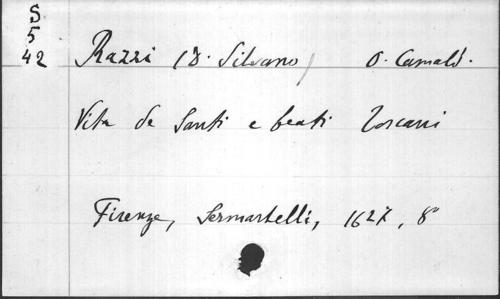 S
5
42
Razzi (D. Silvano) O. Camald.
Vita de Santi e beati Toscani
Firenze, Sermartelli, 1627, 8°